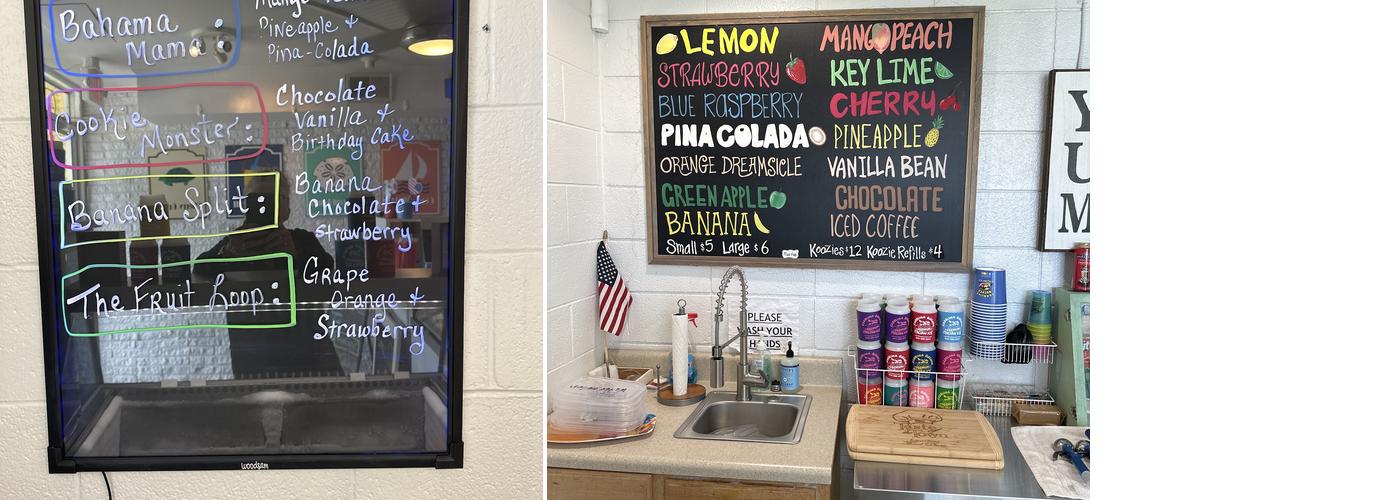 Bahama
Mama:
Pineapple &
Pina-Colada
Cookie
Monster:
Chocolate
Vanilla &
Birthday Cake
Banana Split:
Banana
Chocolate &
Strawberry
The Fruit Loop:
Grape
Orange &
Strawberry
woodsam
LEMON
STRAWBERRY
BLUE RASPBERRY
PINA COLADA
ORANGE DREAMSICLE
GREEN APPLE
BANANA
Small $5 Large $6
MANGO PEACH
KEY LIME
CHERRY
PINEAPPLE
VANILLA BEAN
CHOCOLATE
ICED COFFEE
Koozies $12 Koozie Refills $4
PLEASE
WASH YOUR
HANDS
Y
U
M